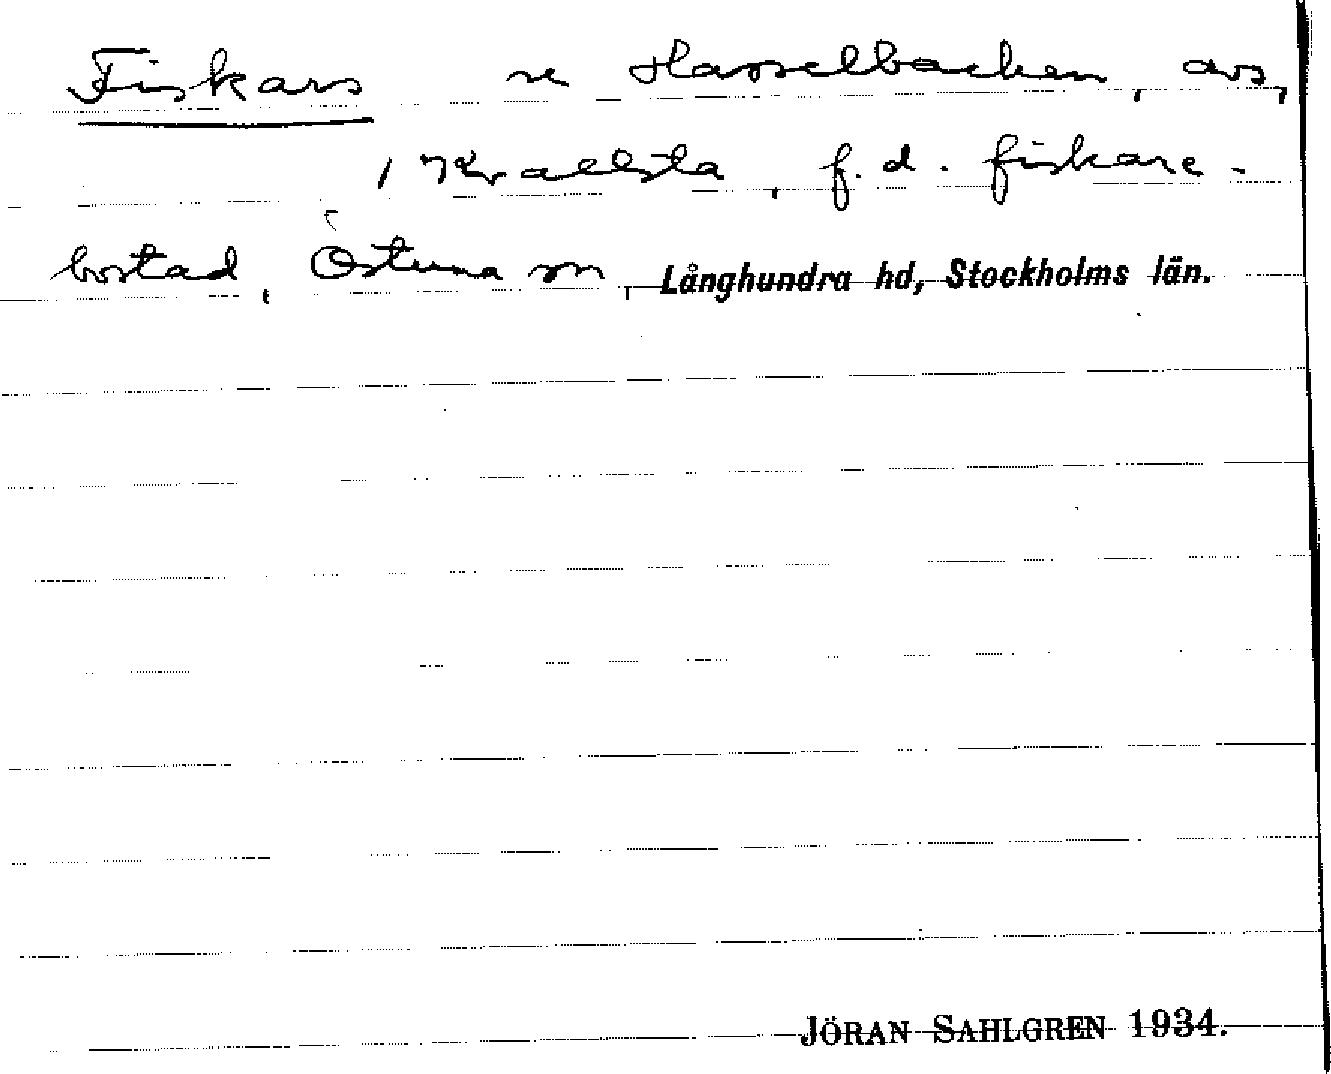 Fiskars se Hasselbacken, avs,
i Krallsta, f.d. fiskare-
bostad, Östuna sn, Långhundra hd, Stockholms län.
JÖRAN SAHLGREN 1934.